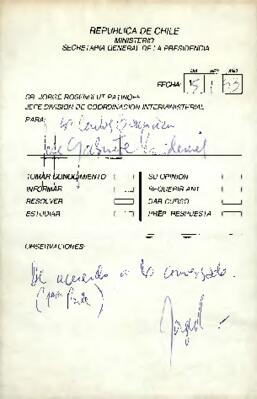 REPUBLICA DE CHILE
MINISTERIO
SECRETARIA GENERAL DE LA PRESIDENCIA
DIA MES AÑO
FECHA: 15 1 93
SR. JORGE ROSENBLUT
JEFE DIVISION DE COORDINACION INTERMINISTERIAL
PARA: Sr Carlos
Jefe Gabinete Presidencial
TOMAR CONOCIMIENTO SU OPINION
INFORMAR REQUERIR ANT.
RESOLVER DAR CURSO
ESTUDIAR PREP. RESPUESTA
OBSERVACIONES:
De acuerdo a lo conversado.
Jorge